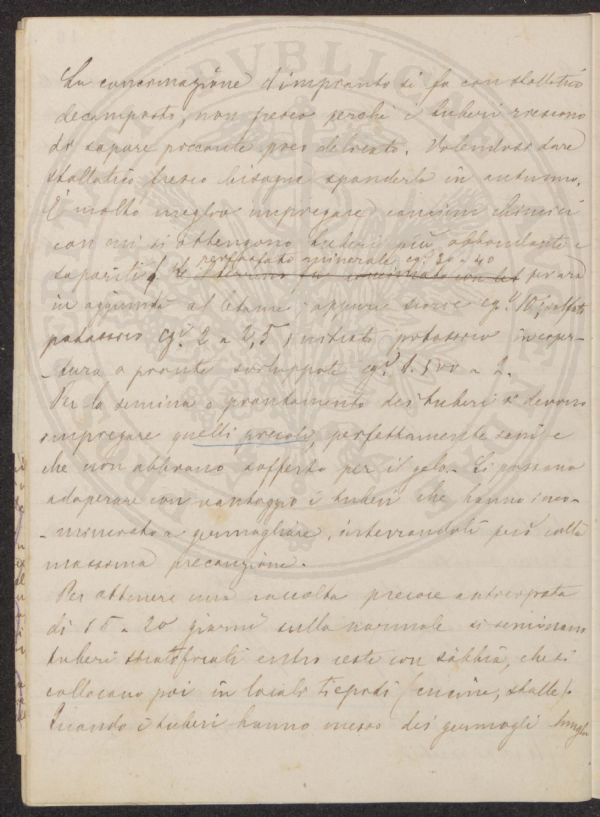 La concimazione d'impianto si fa con stallatico
decomposto, non fresco perchè i tuberi riescono
di sapore piccante poco delicato. Volendosi dare
stallatico fresco bisogna spanderlo in autunno.
È molto meglio impiegare concimi chimici
con cui si ottengono tuberi più abbondanti e
saporiti perfosfato minerale cg. 30 a 40
in aggiunta al letame, oppure scorie cg. 10; solfato
potassico cg. 2 a 2,5; nitrato potassico in coper-
-tura a piante sviluppate cg. 1.500 a 2.
Per la semina o piantamento dei tuberi si devono
impiegare quelli precoci, perfettamente sani e
che non abbiano sofferto per il gelo. Si possono
adoperare con vantaggio i tuberi che hanno inco-
-minciato a germogliare, interrandoli però colla
massima precauzione.
Per ottenere una raccolta precoce anticipata
di 15 a 20 giorni sulla normale si seminano
tuberi stratificati entro ceste con sabbia, che si
collocano poi in locali tiepidi (cucine, stalle).
Quando i tuberi hanno messo dei germogli lunghi